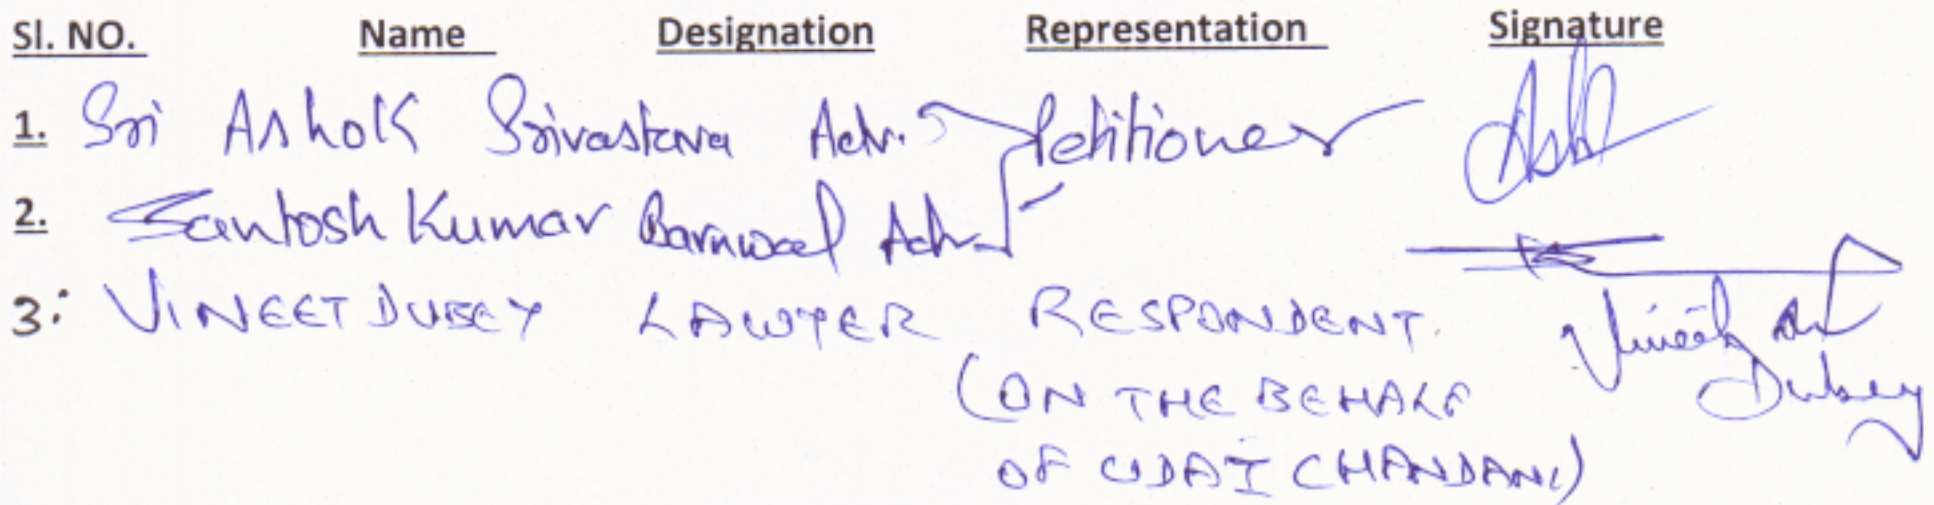 Sl. NO. Name Designation Representation Signature
1. Sri Ashok Srivastava Adv. Petitioner Ash
2. Santosh Kumar Barnwal Adv.
3: VINEET DUBEY LAWYER RESPONDENT. Vineet
(ON THE BEHALF Dubey
OF UDAI CHANDANI)